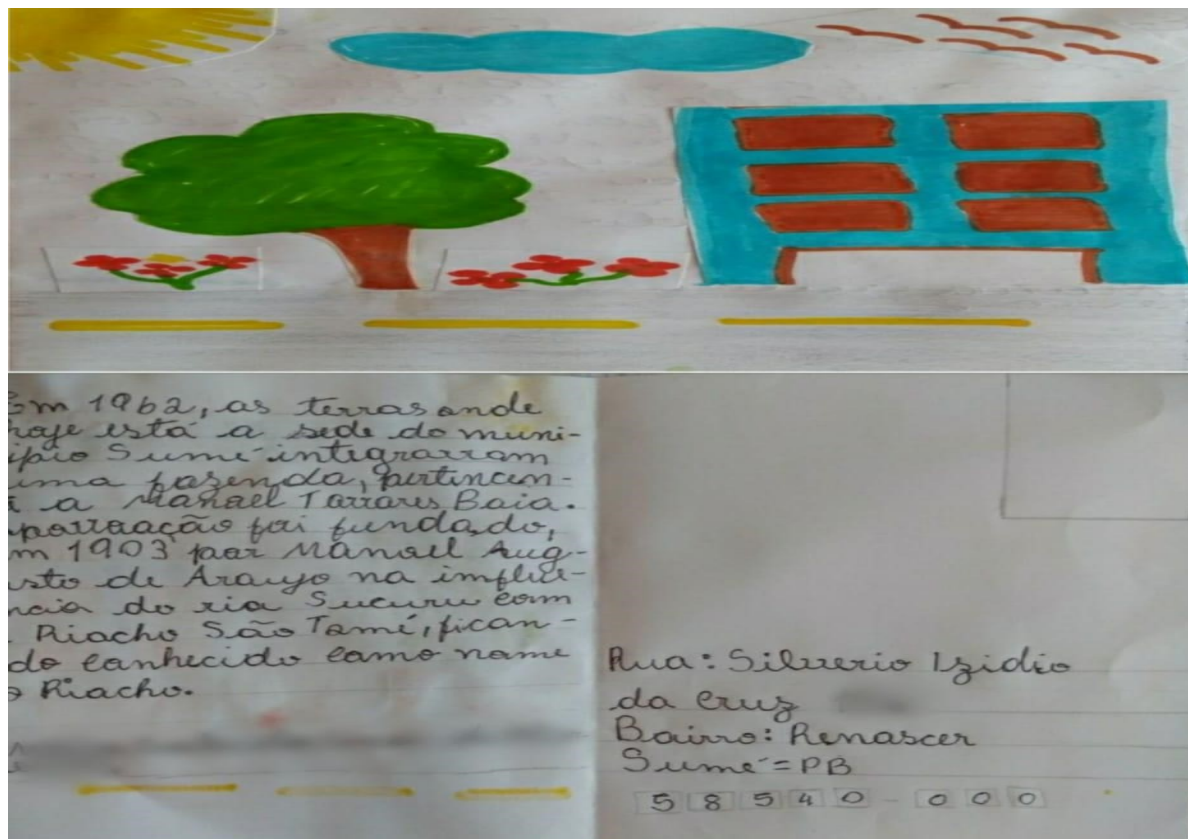 Em 1962, as terras onde
hoje está a sede do muni-
ípio Sumé integrarram
uma fazenda, pertincen-
a Manael Tavares Baia.
porraação foi fundado,
m 1903 por Manoel Aug-
usto de Araujo na influê-
ncia do ria Sucuru com
Riacho São Tomé, fican-
do conhecido como nome
o Riacho.
Rua: Silverio Izidio
da Cruz
Bairro: Renascer
Sumé=PB
58540-000